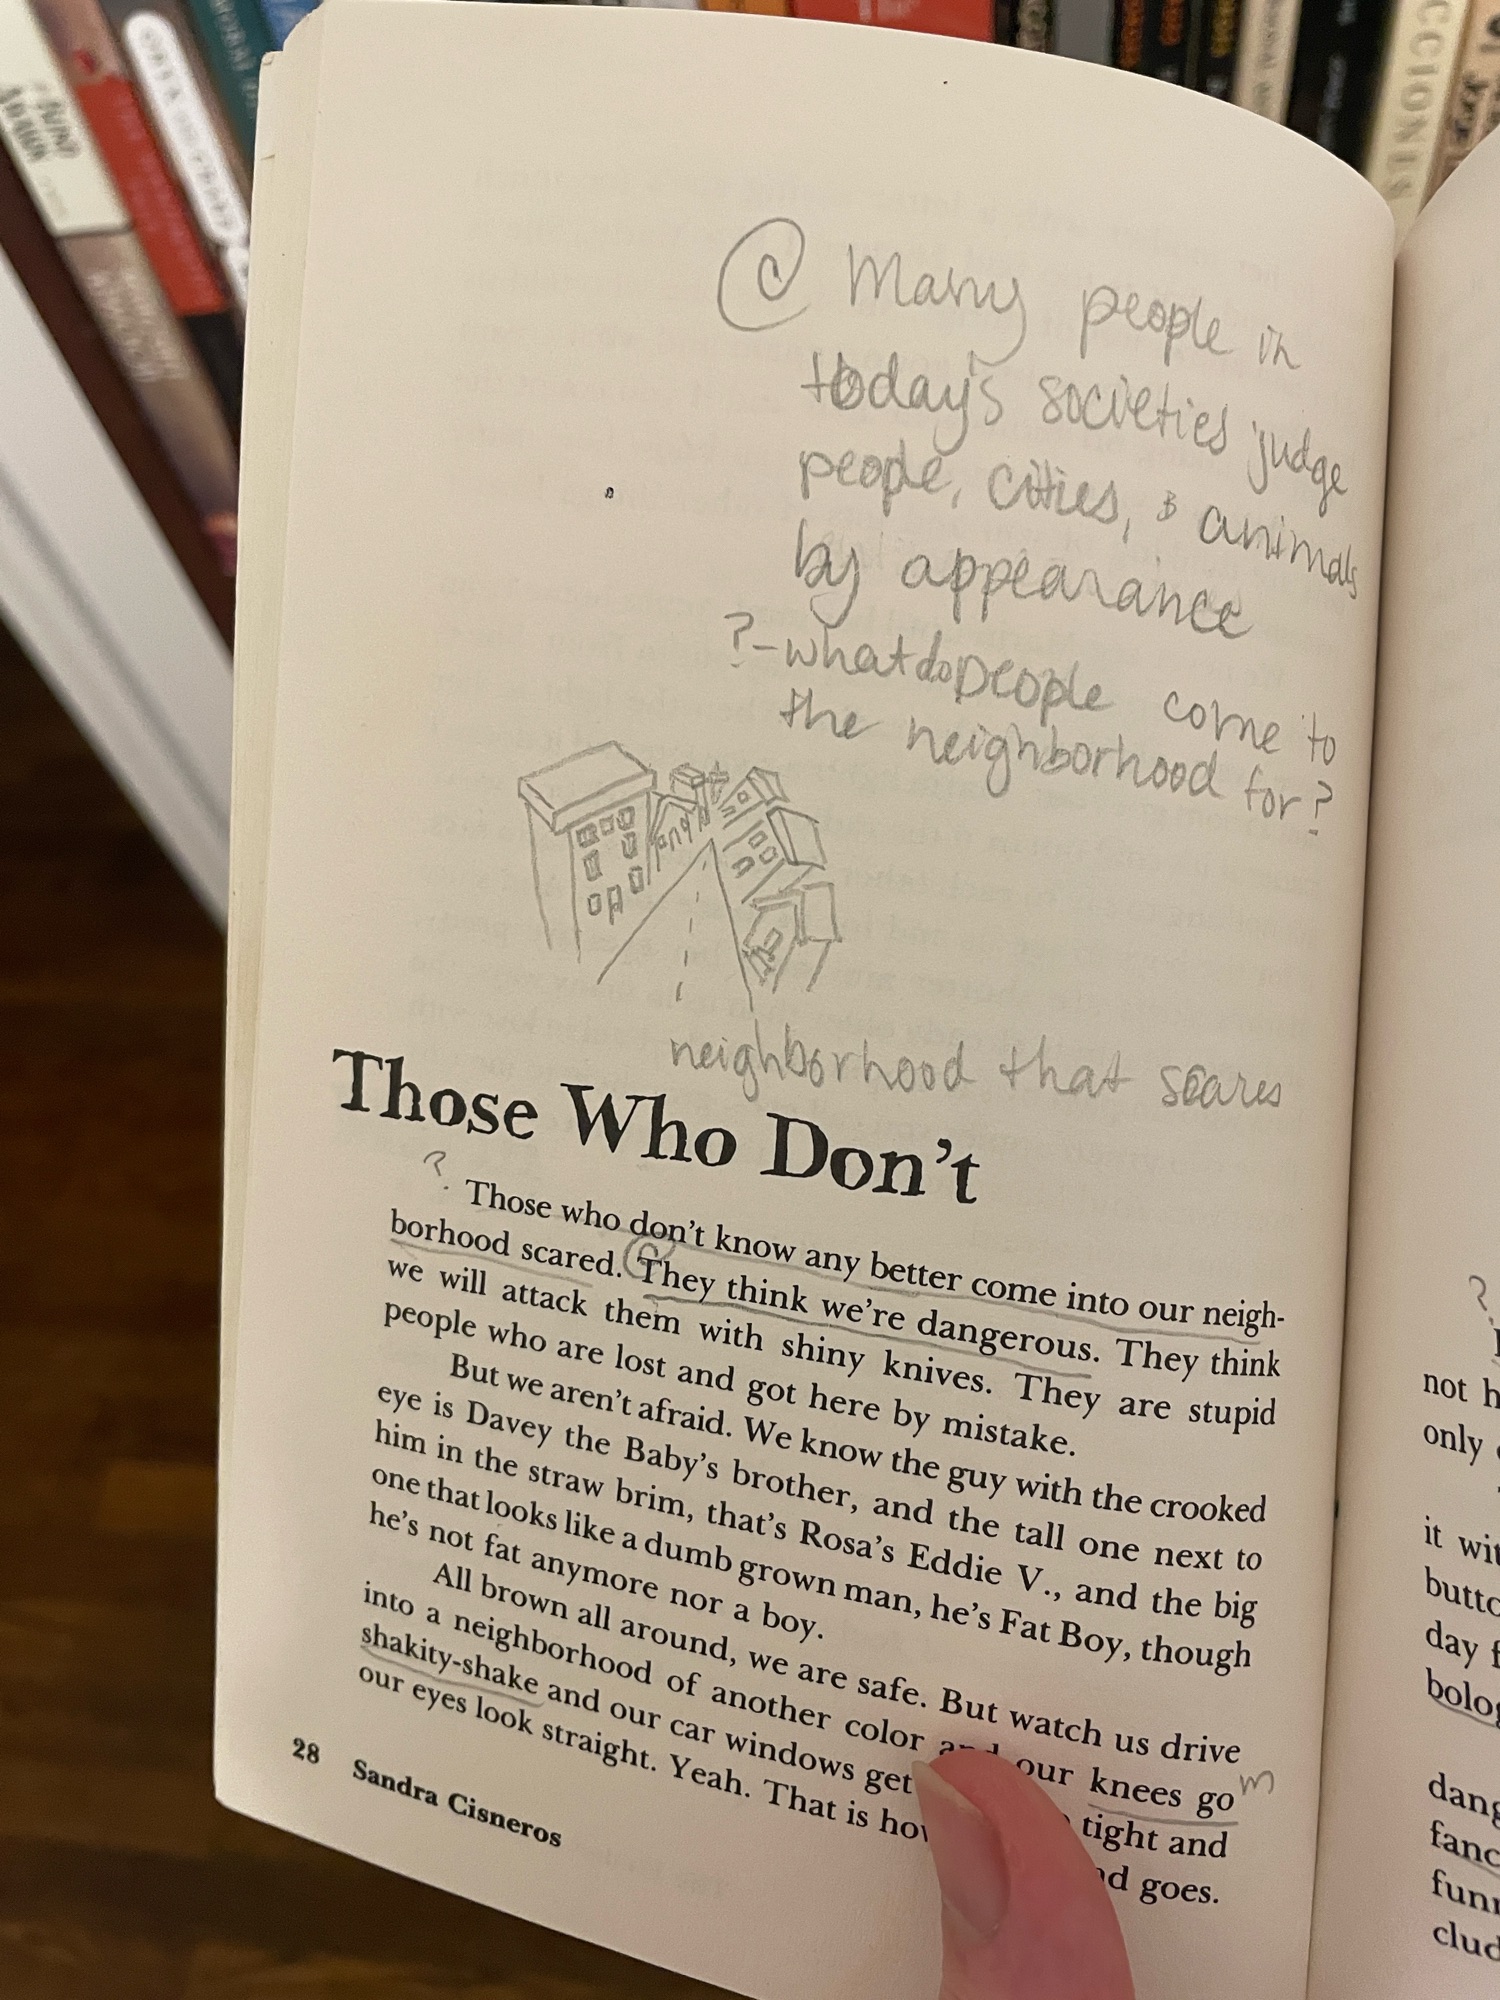 CCIONES
© Many people in
today's societies judge
people, cities, & animals
by appearance
?-what do people come to
the neighborhood for?
neighborhood that scares
Those Who Don't
?
Those who don't know any better come into our neigh-
borhood scared. They think we're dangerous. They think
we will attack them with shiny knives. They are stupid
people who are lost and got here by mistake.
But we aren't afraid. We know the guy with the crooked
eye is Davey the Baby's brother, and the tall one next to
him in the straw brim, that's Rosa's Eddie V., and the big
one that looks like a dumb grown man, he's Fat Boy, though
he's not fat anymore nor a boy.
All brown all around, we are safe. But watch us drive
into a neighborhood of another color and our knees go m
shakity-shake and our car windows get tight and
our eyes look straight. Yeah. That is how goes.
28 Sandra Cisneros
?
not h
only
it wit
butto
day f
bolog
dang
fanc
funn
clud